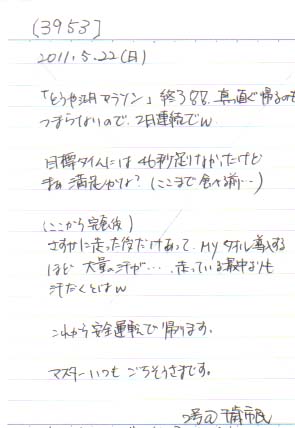 (3953)
2011.5.22(日)
「とうや湖マラソン」終了88. 真っ直ぐ帰るのも
つまらないので、2日連続でw
目標タイムには46秒足りなかったけど
まぁ満足かな？(ここまで食べる前…)
(ここから完食後)
さすがに走った後だけあって、MYタオル導入する
ほど大量の汗が…、走っている最中よりも
汗だくとはw
これから安全運転で帰ります。
マスターいつもごちそうさまです。
2号@千歳市民